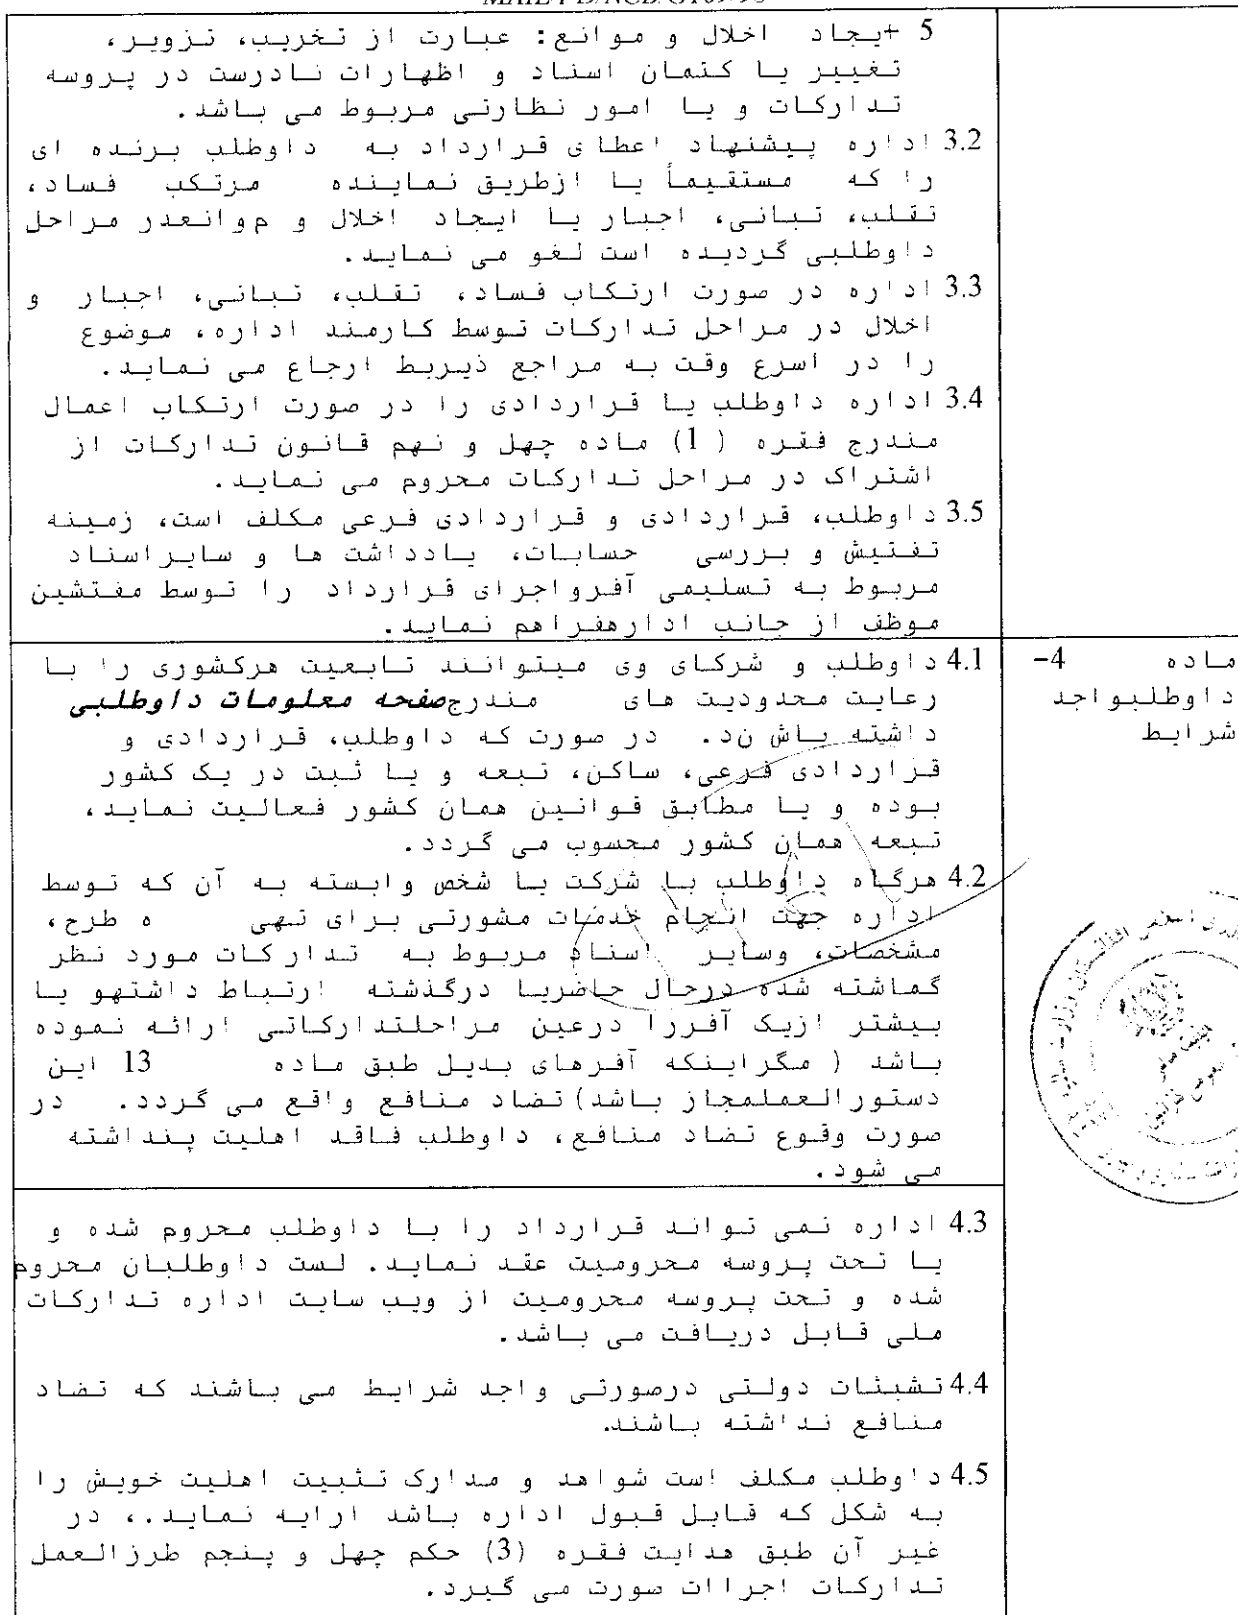 5 +یجاد اخلال و موانع: عبارت از تخریب، تزویر،
تغییر یا کتمان اسناد و اظهارات نادرست در پروسه
تدارکات و یا امور نظارتی مربوط می باشد.
3.2 اداره پیشنهاد اعطای قرارداد به داوطلب برنده ای
را که مستقیماً یا ازطریق نماینده مرتکب فساد،
تقلب، تبانی، اجبار یا ایجاد اخلال و موانعدر مراحل
داوطلبی گردیده است لغو می نماید.
3.3 اداره در صورت ارتکاب فساد، تقلب، تبانی، اجبار و
اخلال در مراحل تدارکات توسط کارمند اداره، موضوع
را در اسرع وقت به مراجع ذیربط ارجاع می نماید.
3.4 اداره داوطلب یا قراردادی را در صورت ارتکاب اعمال
مندرج فقره (1) ماده چهل و نهم قانون تدارکات از
اشتراک در مراحل تدارکات محروم می نماید.
3.5 داوطلب، قراردادی و قراردادی فرعی مکلف است، زمینه
تفتیش و بررسی حسابات، یادداشت ها و سایراسناد
مربوط به تسلیمی آفرواجرای قرارداد را توسط مفتشین
موظف از جانب ادارهفراهم نماید.
ماده 4-
داوطلبواجد
شرایط
4.1 داوطلب و شرکای وی میتوانند تابعیت هرکشوری را با
رعایت محدودیت های مندرجصفحه معلومات داوطلبی
داشته باش ند. در صورت که داوطلب، قراردادی و
قراردادی فرعی، ساکن، تبعه و یا ثبت در یک کشور
بوده و یا مطابق قوانین همان کشور فعالیت نماید،
تبعه همان کشور محسوب می گردد.
4.2 هرگاه داوطلب با شرکت یا شخص وابسته به آن که توسط
اداره جهت انجام خدمات مشورتی برای تهی ه طرح،
مشخصات، وسایر اسناد مربوط به تدارکات مورد نظر
گماشته شده درحال حاضریا درگذشته ارتباط داشتهو یا
بیشتر ازیک آفررا درعین مراحلتدارکاتی ارائه نموده
باشد ( مگراینکه آفرهای بدیل طبق ماده 13 این
دستورالعملمجاز باشد) تضاد منافع واقع می گردد. در
صورت وقوع تضاد منافع، داوطلب فاقد اهلیت پنداشته
می شود.
4.3 اداره نمی تواند قرارداد را با داوطلب محروم شده و
یا تحت پروسه محرومیت عقد نماید. لست داوطلبان محروم
شده و تحت پروسه محرومیت از ویب سایت اداره تدارکات
ملی قابل دریافت می باشد.
4.4 تشبثات دولتی درصورتی واجد شرایط می باشند که تضاد
منافع نداشته باشند.
4.5 داوطلب مکلف است شواهد و مدارک تثبیت اهلیت خویش را
به شکل که قابل قبول اداره باشد ارایه نماید.، در
غیر آن طبق هدایت فقره (3) حکم چهل و پنجم طرزالعمل
تدارکات اجراات صورت می گیرد.